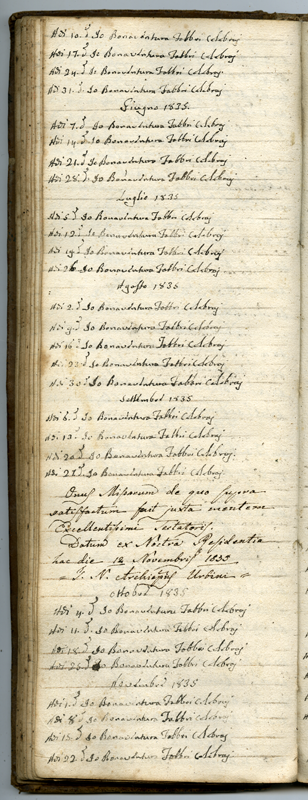 Adi 10. d.º Io Bonaventura Fabbri Celebraj
Adi 17. d.º Io Bonaventura Fabbri Celebraj
Adi 24. d.º Io Bonaventura Fabbri Celebraj
Adi 31. d.º Io Bonaventura Fabbri Celebraj
Giugno 1835
Adi 7. d.º Io Bonaventura Fabbri Celebraj
Adi 14. d.º Io Bonaventura Fabbri Celebraj
Adi 21. d.º Io Bonaventura Fabbri Celebraj
Adi 28. d.º Io Bonaventura Fabbri Celebraj
Luglio 1835
Adi 5. d.º Io Bonaventura Fabbri Celebraj
Adi 12. d.º Io Bonaventura Fabbri Celebraj
Adi 19. d.º Io Bonaventura Fabbri Celebraj
Adi 26. d.º Io Bonaventura Fabbri Celebraj
Agosto 1835
Adi 2. d.º Io Bonaventura Fabbri Celebraj
Adi 9. d.º Io Bonaventura Fabbri Celebraj
Adi 16. d.º Io Bonaventura Fabbri Celebraj
Adi 22. d.º Io Bonaventura Fabbri Celebraj
Adi 30. d.º Io Bonaventura Fabbri Celebraj
Settembre 1835
Adi 6. d.º Io Bonaventura Fabbri Celebraj
Adi 13. d.º Io Bonaventura Fabbri Celebraj
Adi 20. d.º Io Bonaventura Fabbri Celebraj
Adi 27. d.º Io Bonaventura Fabbri Celebraj
Onus Missarum de quo supra
satisfactum fuit juxta mentem
Excellentissimi Testatoris.
Datum ex Nostra Residentia
hac die 12 Novembris 1835
= I. N. Archiepus Urbini =
Ottobre 1835
Adi 4. d.º Io Bonaventura Fabbri Celebraj
Adi 11. d.º Io Bonaventura Fabbri Celebraj
Adi 18. d.º Io Bonaventura Fabbri Celebraj
Adi 25. d.º Io Bonaventura Fabbri Celebraj
Novembre 1835
Adi 1. d.º Io Bonaventura Fabbri Celebraj
Adi 8. d.º Io Bonaventura Fabbri Celebraj
Adi 15. d.º Io Bonaventura Fabbri Celebraj
Adi 22. d.º Io Bonaventura Fabbri Celebraj